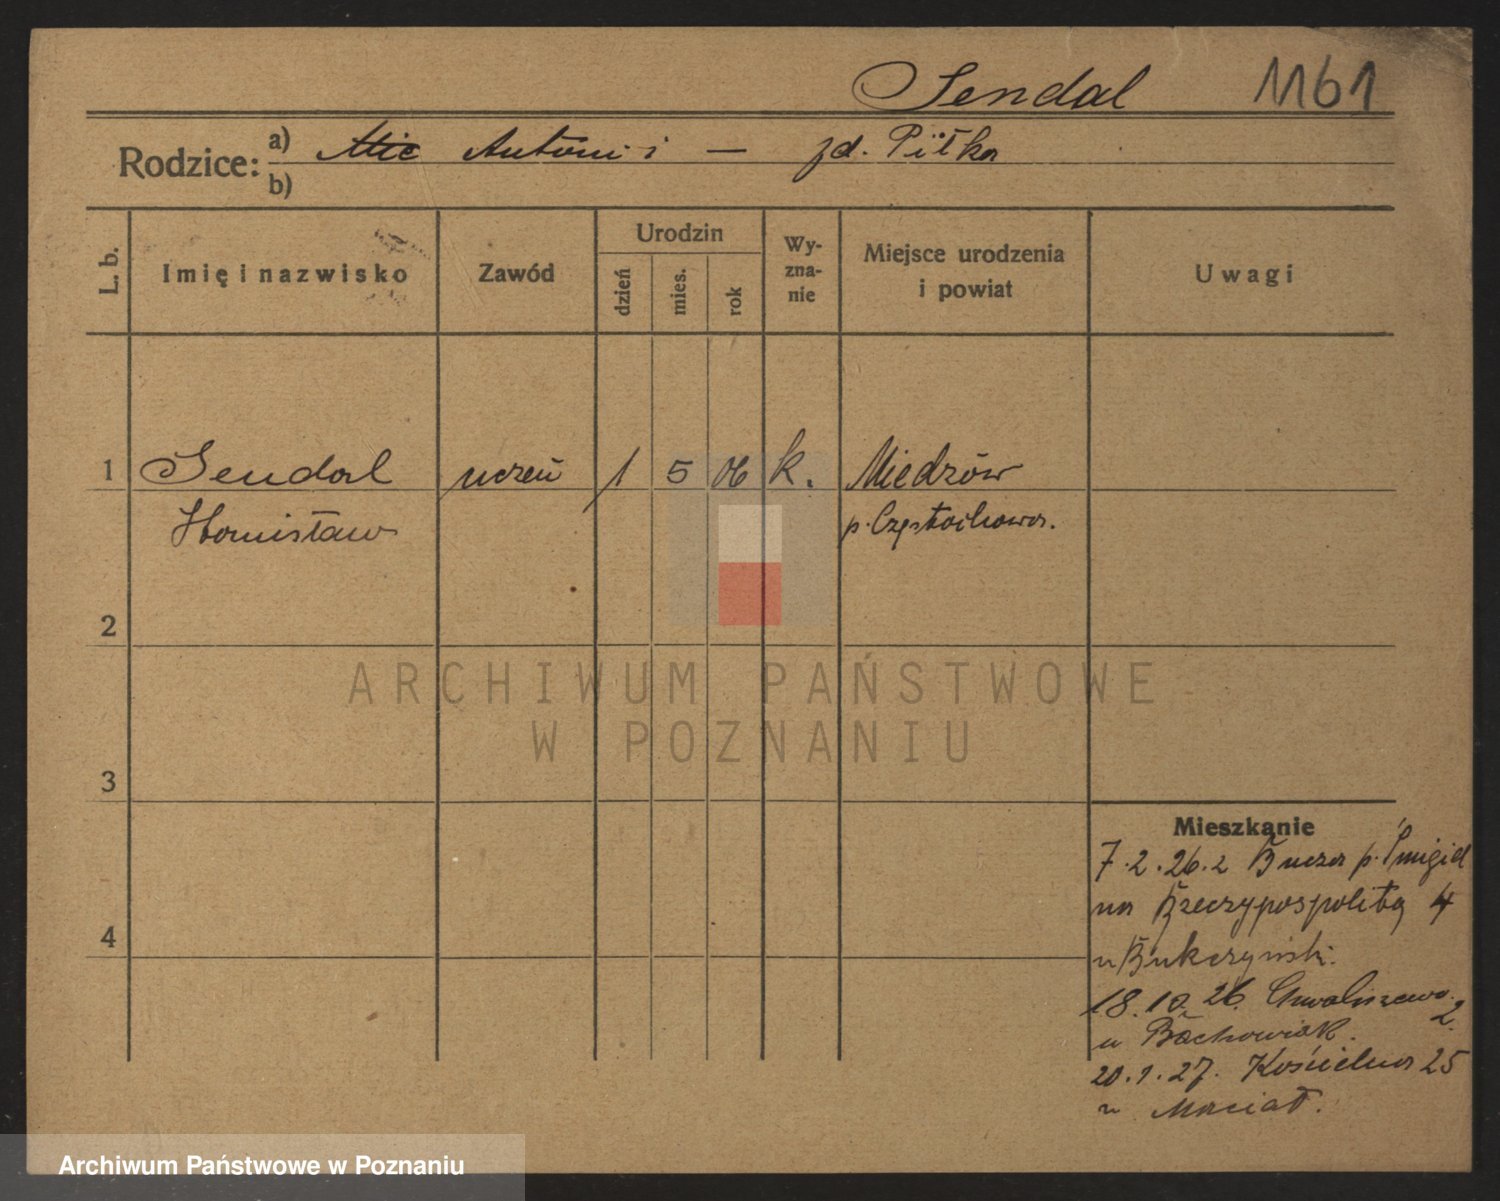 Sendal 1161
Rodzice: a) Mic Antoni i — zd. Piłka
b)
L. b. Imię i nazwisko Zawód Urodzin dzień mies. rok Wyznanie Miejsce urodzenia i powiat Uwagi
1 Sendal uczeń 1 5 06 k. Miedzów
Stanisław p. Częstochowa.
2
3
4
Mieszkanie
7.2.26. z Bucza p. Śmigiel
na Rzeczypospolitą 4
u Bukczyński.
18.10.26. Chwaliszewo 2.
u Bachowiak.
20.1.27. Kościelna 25
u Maciat.
ARCHIWUM PAŃSTWOWE
W POZNANIU
Archiwum Państwowe w Poznaniu